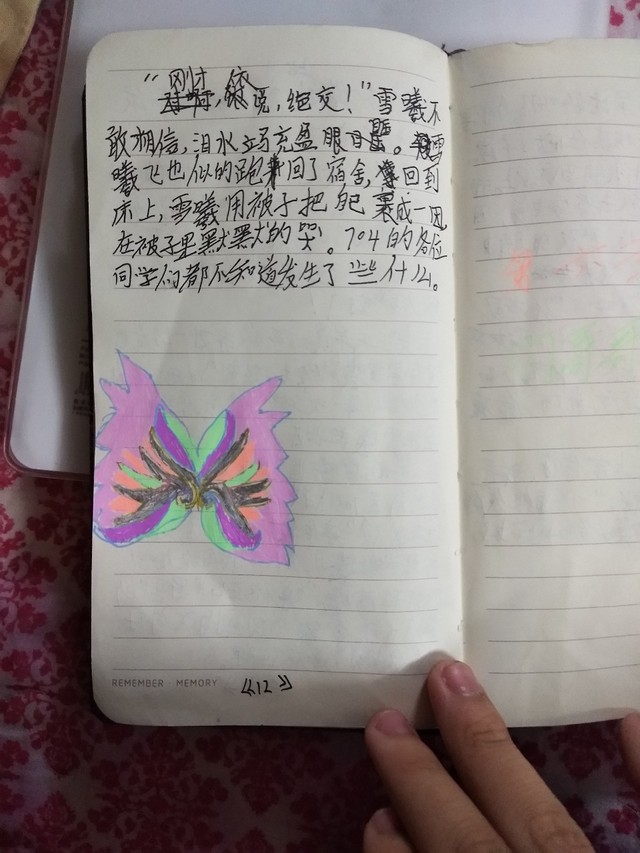 “刚才，说，绝交！”雪曦不
敢相信，泪水立马充盈眼眶。雪
曦飞也似的跑回了宿舍，回到
床上，雪曦用被子把自己裹成一团
在被子里默默的哭。704的各位
同学们都不知道发生了些什么。
REMEMBER MEMORY 《12》